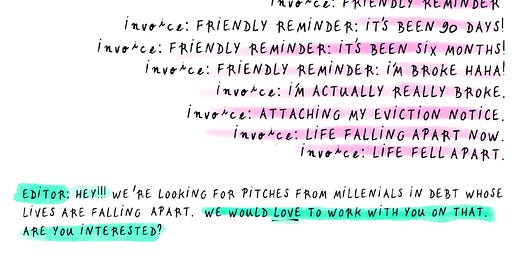 invoice: FRIENDLY REMINDER
invoice: FRIENDLY REMINDER: iT'S BEEN 90 DAYS!
invoice: FRIENDLY REMINDER: iT'S BEEN SiX MONTHS!
invoice: FRIENDLY REMINDER: i'M BROKE HAHA!
invoice: i'M ACTUALLY REALLY BROKE.
invoice: ATTACHING MY EVICTION NOTICE.
invoice: LIFE FALLING APART NOW.
invoice: LIFE FELL APART.
EDITOR: HEY!!! WE'RE LOOKING FOR PITCHES FROM MILLENIALS IN DEBT WHOSE
LIVES ARE FALLING APART. WE WOULD LOVE TO WORK WITH YOU ON THAT.
ARE YOU INTERESTED?